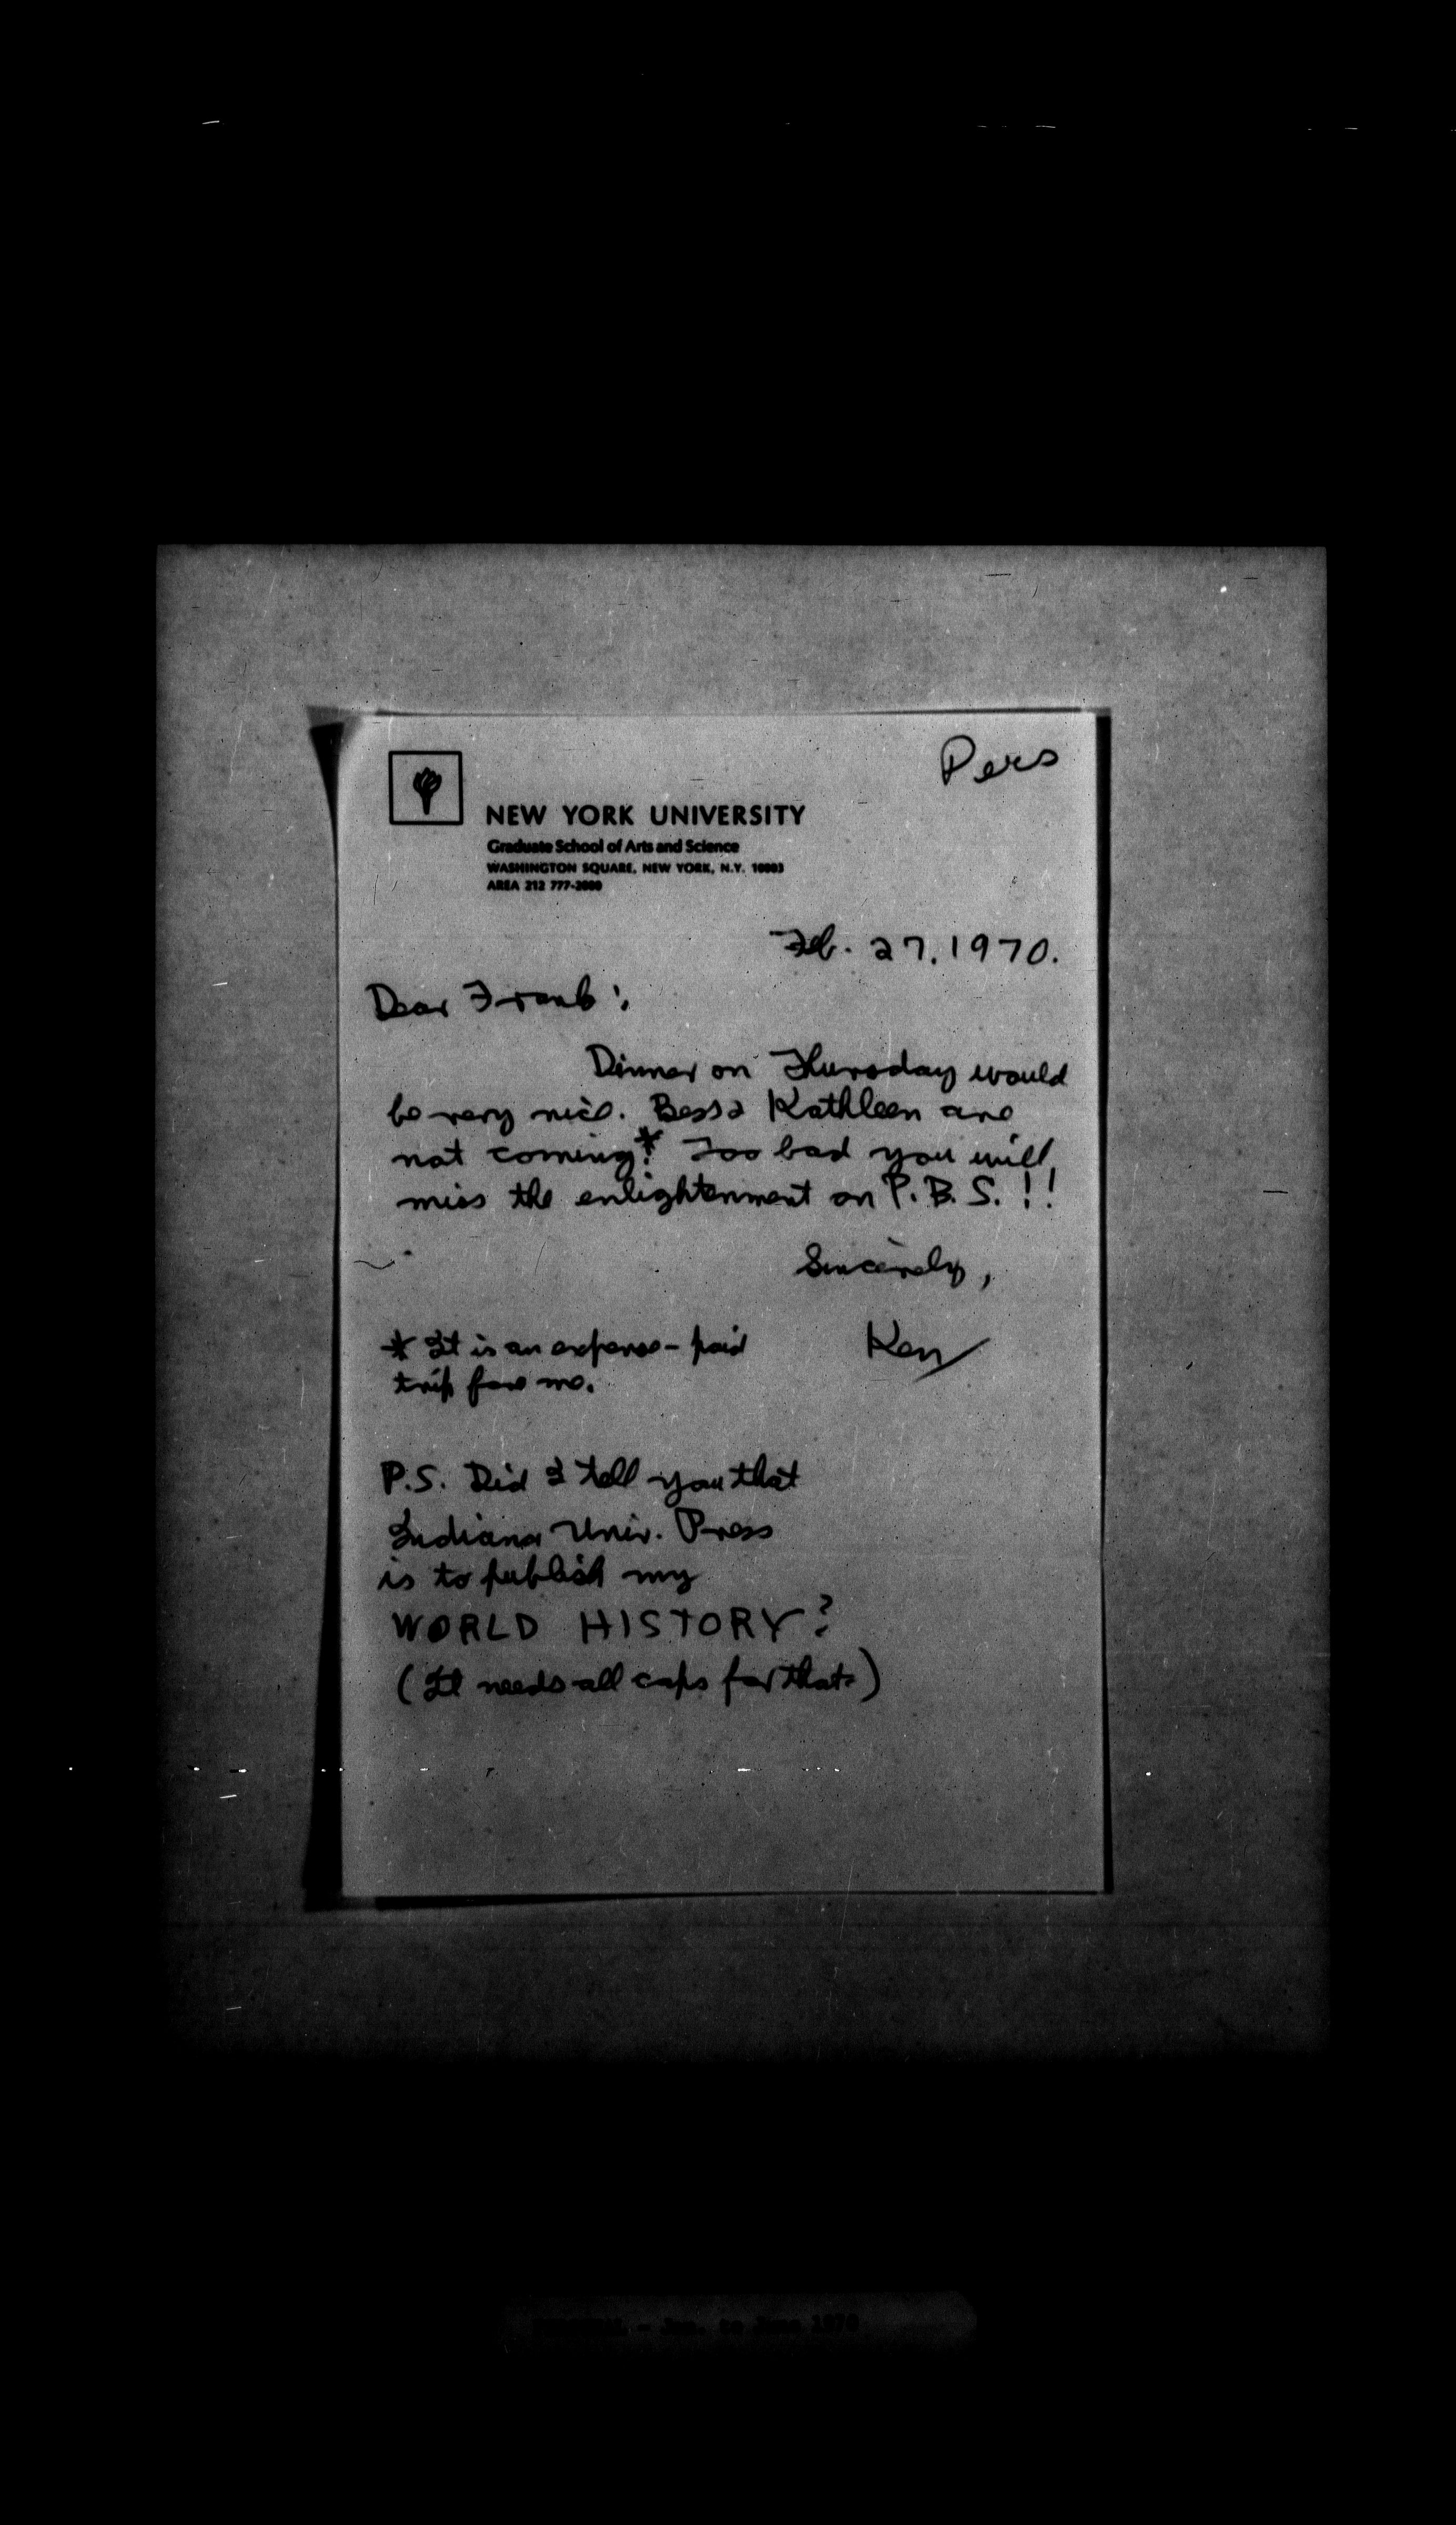 Pers
NEW YORK UNIVERSITY
Graduate School of Arts and Science
WASHINGTON SQUARE, NEW YORK, N.Y. 10003
AREA 212 777-2000
Feb. 27, 1970.
Dear Frank:
Dinner on Thursday would
be very nice. Bess & Kathleen are
not coming.* Too bad you will
miss the enlightenment on P.B.S.!!
Sincerely,
Ken
* It is an expense-paid
trip for me.
P.S. Did I tell you that
Indiana Univ. Press
is to publish my
WORLD HISTORY?
(It needs all caps for that.)
- Jan. to June 1970